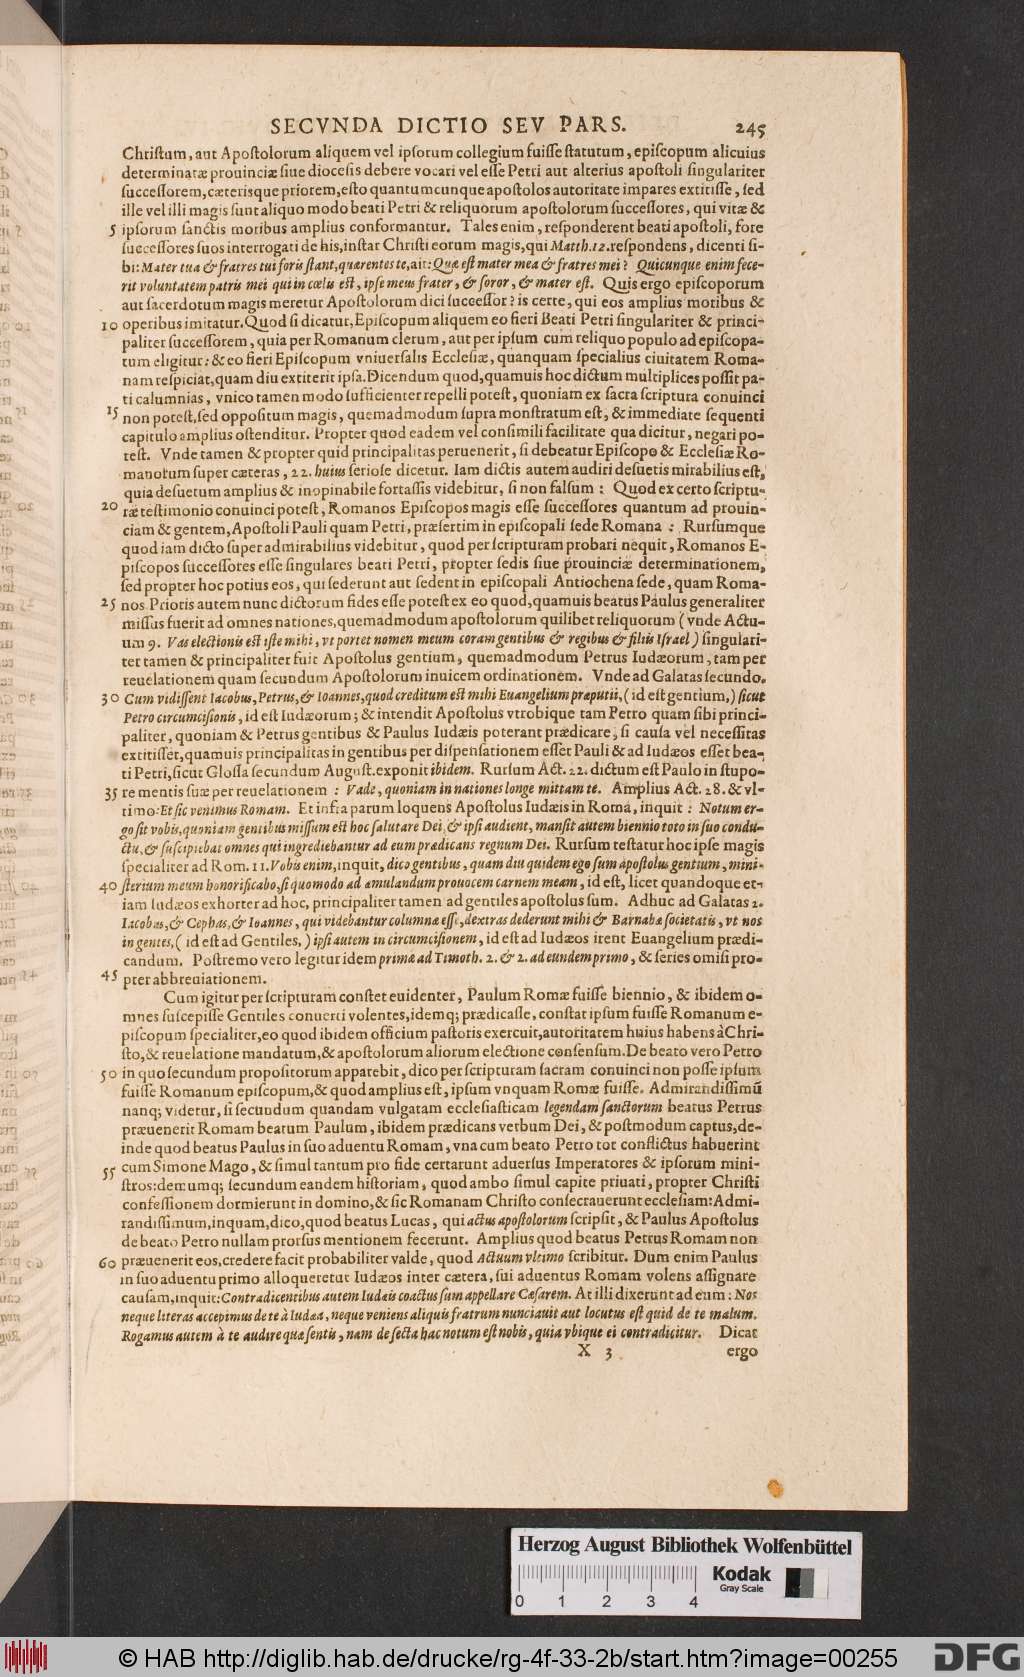 SECVNDA DICTIO SEV PARS. 245
Christum, aut Apostolorum aliquem vel ipsorum collegium fuisse statutum, episcopum alicuius
determinatæ prouinciæ siue diocesis debere vocari vel esse Petri aut alterius apostoli singulariter
successorem, cæterisque priorem, esto quantumcunque apostolos autoritate impares extitisse, sed
ille vel illi magis sunt aliquo modo beati Petri & reliquorum apostolorum successores, qui vitæ &
5 ipsorum sanctis moribus amplius conformantur. Tales enim, responderent beati apostoli, fore
successores suos interrogati de his, instar Christi eorum magis, qui Matth. 12. respondens, dicenti si-
bi: Mater tua & fratres tui foris stant, quærentes te, ait: Quæ est mater mea & fratres mei? Quicunque enim fece-
rit voluntatem patris mei qui in cœlis est, ipse meus frater, & soror, & mater est. Quis ergo episcoporum
aut sacerdotum magis meretur Apostolorum dici successor? is certe, qui eos amplius moribus &
10 operibus imitatur. Quod si dicatur, Episcopum aliquem eo fieri Beati Petri singulariter & princi-
paliter successorem, quia per Romanum clerum, aut per ipsum cum reliquo populo ad episcopa-
tum eligitur: & eo fieri Episcopum vniuersalis Ecclesiæ, quanquam specialius ciuitatem Roma-
nam respiciat, quam diu extiterit ipsa. Dicendum quod, quamuis hoc dictum multiplices possit pa-
ti calumnias, vnico tamen modo sufficienter repelli potest, quoniam ex sacra scriptura conuinci
15 non potest, sed oppositum magis, quemadmodum supra monstratum est, & immediate sequenti
capitulo amplius ostenditur. Propter quod eadem vel consimili facilitate qua dicitur, negari po-
test. Vnde tamen & propter quid principalitas peruenerit, si debeatur Episcopo & Ecclesiæ Ro-
manorum super cæteras, 22. huius seriose dicetur. Iam dictis autem audiri desuetis mirabilius est,
quia desuetum amplius & inopinabile fortassis videbitur, si non falsum: Quod ex certo scriptu-
20 ræ testimonio conuinci potest, Romanos Episcopos magis esse successores quantum ad prouin-
ciam & gentem, Apostoli Pauli quam Petri, præsertim in episcopali sede Romana: Rursumque
quod iam dicto super admirabilius videbitur, quod per scripturam probari nequit, Romanos E-
piscopos successores esse singulares beati Petri, propter sedis siue prouinciæ determinationem,
sed propter hoc potius eos, qui sederunt aut sedent in episcopali Antiochena sede, quam Roma-
25 nos. Prioris autem nunc dictorum fides esse potest ex eo quod, quamuis beatus Paulus generaliter
missus fuerit ad omnes nationes, quemadmodum apostolorum quilibet reliquorum (vnde Actu-
um 9. Vas electionis est iste mihi, vt portet nomen meum coram gentibus & regibus & filiis Israel) singulari-
ter tamen & principaliter fuit Apostolus gentium, quemadmodum Petrus Iudæorum, tam per
reuelationem quam secundum Apostolorum inuicem ordinationem. Vnde ad Galatas secundo.
30 Cum vidissent Iacobus, Petrus, & Ioannes, quod creditum est mihi Euangelium præputii, (id est gentium,) sicut
Petro circumcisionis, id est Iudæorum; & intendit Apostolus vtrobique tam Petro quam sibi princi-
paliter, quoniam & Petrus gentibus & Paulus Iudæis poterant prædicare, si causa vel necessitas
extitisset, quamuis principalitas in gentibus per dispensationem esset Pauli & ad Iudæos esset bea-
ti Petri, sicut Glossa secundum August. exponit ibidem. Rursum Act. 22. dictum est Paulo in stupo-
35 re mentis suæ per reuelationem: Vade, quoniam in nationes longe mittam te. Amplius Act. 28. & vl-
timo: Et sic venimus Romam. Et infra parum loquens Apostolus Iudæis in Roma, inquit: Notum er-
go sit vobis, quoniam gentibus missum est hoc salutare Dei, & ipsi audient, mansit autem biennio toto in suo condu-
ctu, & suscipiebat omnes qui ingrediebantur ad eum prædicans regnum Dei. Rursum testatur hoc ipse magis
specialiter ad Rom. 11. Vobis enim, inquit, dico gentibus, quam diu quidem ego sum apostolus gentium, mini-
40 sterium meum honorificabo, si quomodo ad æmulandum prouocem carnem meam, id est, licet quandoque et-
iam Iudæos exhorter ad hoc, principaliter tamen ad gentiles apostolus sum. Adhuc ad Galatas 2.
Iacobus, & Cephas, & Ioannes, qui videbantur columnæ esse, dextras dederunt mihi & Barnabæ societatis, vt nos
in gentes, (id est ad Gentiles,) ipsi autem in circumcisionem, id est ad Iudæos irent Euangelium prædi-
candum. Postremo vero legitur idem primæ ad Timoth. 2. & 2. ad eundem primo, & series omisi pro-
45 pter abbreuiationem.
Cum igitur per scripturam constet euidenter, Paulum Romæ fuisse biennio, & ibidem o-
mnes suscepisse Gentiles conuerti volentes, idemq; prædicasse, constat ipsum fuisse Romanum e-
piscopum specialiter, eo quod ibidem officium pastoris exercuit, autoritatem huius habens à Chri-
sto, & reuelatione mandatum, & apostolorum aliorum electione consensum. De beato vero Petro
50 in quo secundum propositorum apparebit, dico per scripturam sacram conuinci non posse ipsum
fuisse Romanum episcopum, & quod amplius est, ipsum vnquam Romæ fuisse. Admirandissimū
nanq; videtur, si secundum quandam vulgatam ecclesiasticam legendam sanctorum beatus Petrus
præuenerit Romam beatum Paulum, ibidem prædicans verbum Dei, & postmodum captus, de-
inde quod beatus Paulus in suo aduentu Romam, vna cum beato Petro tot conflictus habuerint
55 cum Simone Mago, & simul tantum pro fide certarunt aduersus Imperatores & ipsorum mini-
stros: demumq; secundum eandem historiam, quod ambo simul capite priuati, propter Christi
confessionem dormierunt in domino, & sic Romanam Christo consecrauerunt ecclesiam: Admi-
randissimum, inquam, dico, quod beatus Lucas, qui actus apostolorum scripsit, & Paulus Apostolus
de beato Petro nullam prorsus mentionem fecerunt. Amplius quod beatus Petrus Romam non
60 præuenerit eos, credere facit probabiliter valde, quod Actuum vltimo scribitur. Dum enim Paulus
in suo aduentu primo alloqueretur Iudæos inter cætera, sui aduentus Romam volens assignare
causam, inquit: Contradicentibus autem Iudæis coactus sum appellare Cæsarem. At illi dixerunt ad eum: Nos
neque literas accepimus de te à Iudæa, neque veniens aliquis fratrum nunciauit aut locutus est quid de te malum.
Rogamus autem à te audire quæ sentis, nam de secta hac notum est nobis, quia vbique ei contradicitur. Dicat
X 3 ergo
Herzog August Bibliothek Wolfenbüttel
Kodak
Gray Scale
0 1 2 3 4
© HAB http://diglib.hab.de/drucke/rg-4f-33-2b/start.htm?image=00255
DFG